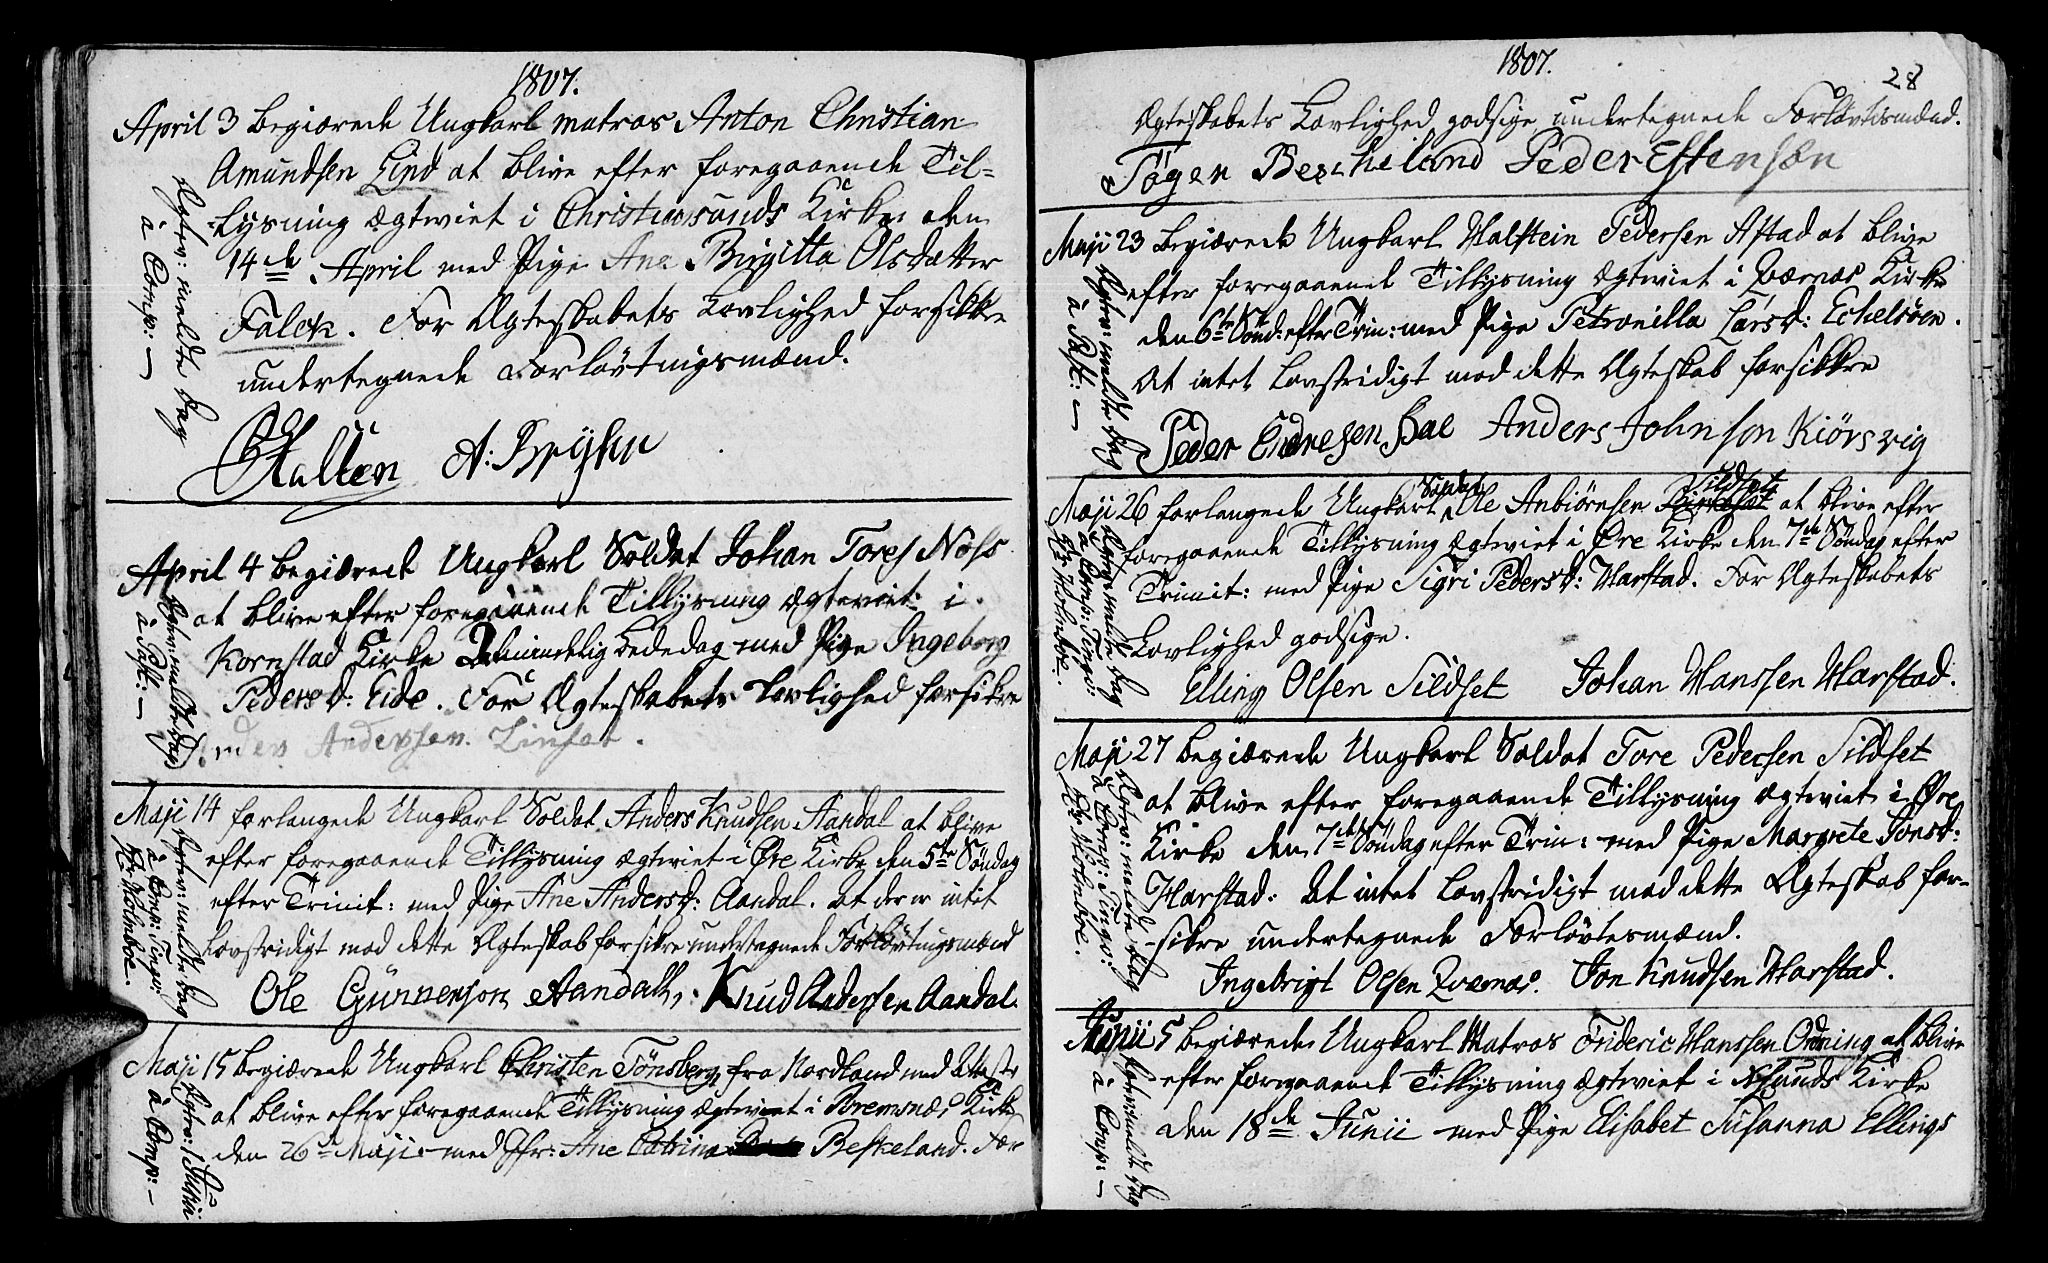 1807.
April 3 begiærede Ungkarl Matros Anton Christian
Amundsen Lind at blive efter foregaaende Til-
lysning ægteviet i Christiansunds Kirke den
14de April med Pige Ane Birgitta Olsdatter
Falck. For Ægteskabets Lovlighed forsikkre
undertegnede Forlovtningsmænd.
Hallen A: Bryhn
Egtev: meldte Dag
à Cop: —
April 4 begiærede Ungkarl Soldat Johan Tores Nols
at blive efter foregaaende Tillysning ægteviet i
Kornstad Kirke Almindelig Bededag med Pige Ingeborg
Peders D: Eide. For Ægteskabets Lovlighed forsikre
Anders Andersen Linset.
Egtev: meldte Dag
Maji 14 forlangede Ungkarl Soldat Anders Knudsen Aandal at blive
efter foregaaende Tillysning ægteviet i Øre Kirke den 5te Søndag
efter Trinit: med Pige Ane Anders D: Aandal. At der er intet
Lovstridigt mod dette Ægteskab forsikre undertegnede Forlovtningsmænd
Ole Gunnerson Aandall, Knud Andersen Aandal.
Egtev: meldte Dag
Hr Holmboe.
Maji 15 begiærede Ungkarl Christen Tønsberg fra Nordland med Atteste
at blive efter foregaaende Tillysning ægteviet i Bremsnæs Kirke
den 26de Maji med Jfr: Ane Catrina Beskeland. For
Egtev: 1 Junii
1807.
28
Ægteskabets Lovlighed godsige undertegnede Forlovtesmænd.
Tøger Bescheland Peder Estensøn
Maji 23 begiærede Ungkarl Halstein Pedersen Astad at blive
efter foregaaende Tillysning ægteviet i Qværnæs Kirke
den 6te Sønd: efter Trin: med Pige Petronilla Larsd: Echelsøen.
At intet Lovstridigt mod dette Ægteskab forsikkre
Peder Endresen Bae Anders Johnson Kiørsvig
Egtev: meldte Dag
Maji 26 forlangede Ungkarl Soldat Ole Anbiørnsen Sildset at blive efter
foregaaende Tillysning ægteviet i Øre Kirke den 7de Søndag efter
Trinit: med Pige Sigri Peders D: Harstad. For Ægteskabets
Lovlighed godsige.
Elling Olsen Sildset Johan Hanssen Harstad.
Egtev: meldte Dag
Hr Holmboe.
Maji 27 begiærede Ungkarl Soldat Tore Pedersen Sildset
at blive efter foregaaende Tillysning ægteviet i Øre
Kirke den 7de Søndag efter Trin: med Pige Margrete Jonsd:
Harstad: At intet Lovstridigt mod dette Ægteskab for-
sikre undertegnede Forlovtesmænd.
Ingebrigt Olsen Qværnæs. Jon Knudsen Harstad.
Egtev: meldte Dag
Hr Holmboe.
Junii 5 begiærede Ungkarl Matros Frideric Hanssen Ordning at blive
efter foregaaende Tillysning ægteviet i Xsunds Kirke
den 18de Junii med Pige Elisabet Susanna Ellings
Egtev: meldte Dag
à Cop: —